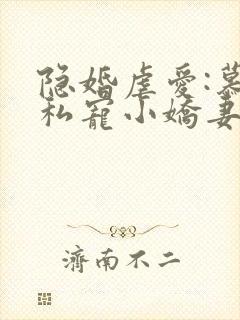 隐婚虐爱:慕
私宠小娇妻
濟南不二